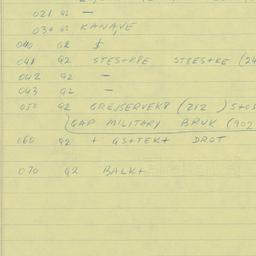 021 G2 —
030 G2 KANAVE
040 G2
041 G2 STES+KPE STIES+KE (24
042 G2 —
043 G2 —
050 G2 GREJSERVEKP (212 ) S+OS
GAP MILITARY BRUK (902
060 G2 + GS+TEK+ DROT
070 G2 BALK+